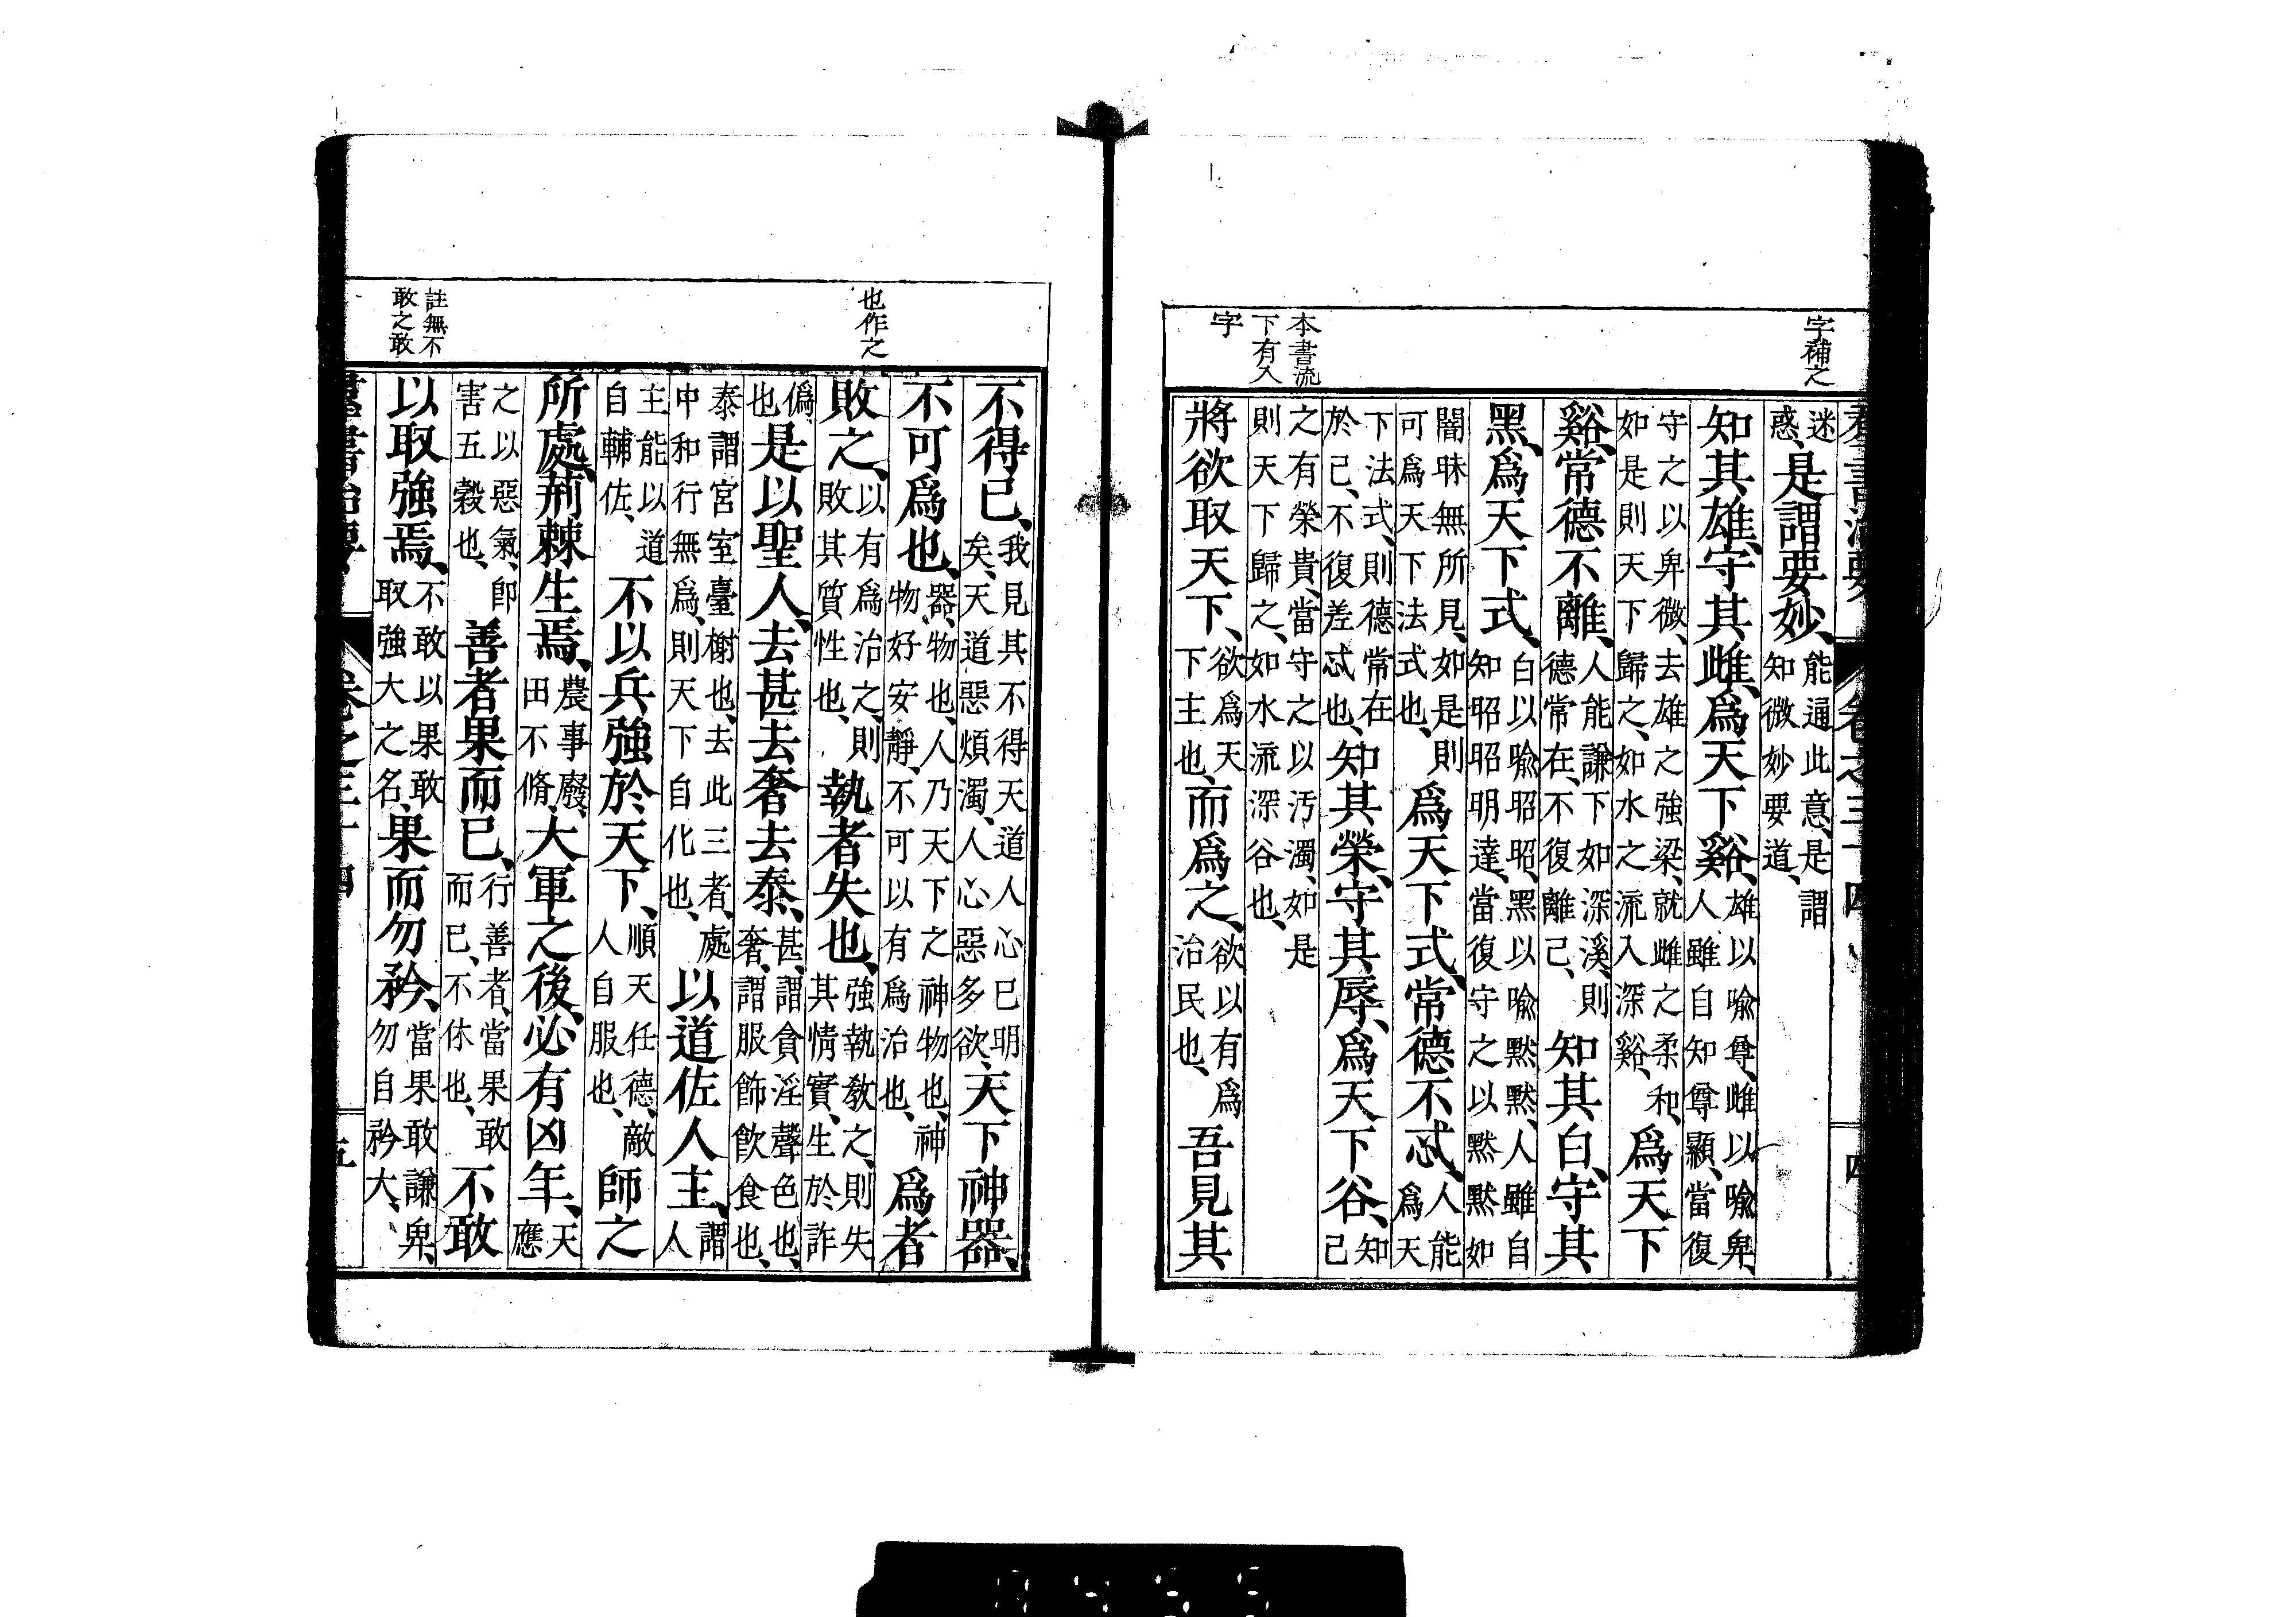 字補之
本書流
下有入
字
羣書治要 卷之三十四 四
迷惑、是謂要妙、能通此意、是謂知微妙要道、
知其雄、守其雌、爲天下谿、雄以喩尊、雌以喩卑、人雖自知尊顯、當復
守之以卑微、去雄之強梁、就雌之柔和、如是則天下歸之、如水之流入深谿、爲天下
谿、常德不離、人能謙下如深溪、則德常在、不復離己、知其白、守其
黑、爲天下式、白以喩昭昭、黑以喩默默、人雖自知昭昭明達、當復守之以默默如
闇昧無所見、如是則可爲天下法式也、爲天下式、常德不忒、人能爲天
下法式、則德常在於己、不復差忒也、知其榮、守其辱、爲天下谷、知己
之有榮貴、當守之以汚濁、如是則天下歸之、如水流深谷也、
將欲取天下、欲爲天下主也、而爲之、欲以有爲治民也、吾見其
也作之
註無不
敢之敢
不得已、我見其不得天道人心已明矣、天道惡煩濁、人心惡多欲、天下神器、
不可爲也、器、物也、人乃天下之神物也、神物好安靜、不可以有爲治也、爲者
敗之、以有爲治之、則敗其質性也、執者失也、強執敎之、則失其情實、生於詐
僞也、是以聖人、去甚去奢去泰、甚、謂貪淫聲色也、奢、謂服飾飮食也、
泰謂宮室臺榭也、去此三者、處中和行無爲、則天下自化也、以道佐人主、謂人
主能以道自輔佐、不以兵強於天下、順天任德、敵人自服也、師之
所處、荊棘生焉、農事廢、田不脩、大軍之後、必有凶年、天應
之以惡氣、卽害五穀也、善者果而已、行善者、當果敢而已、不休也、不敢
以取強焉、不敢以果敢取強大之名、果而勿矜、當果敢謙卑、勿自矜大、
羣書治要 卷之三十四 五